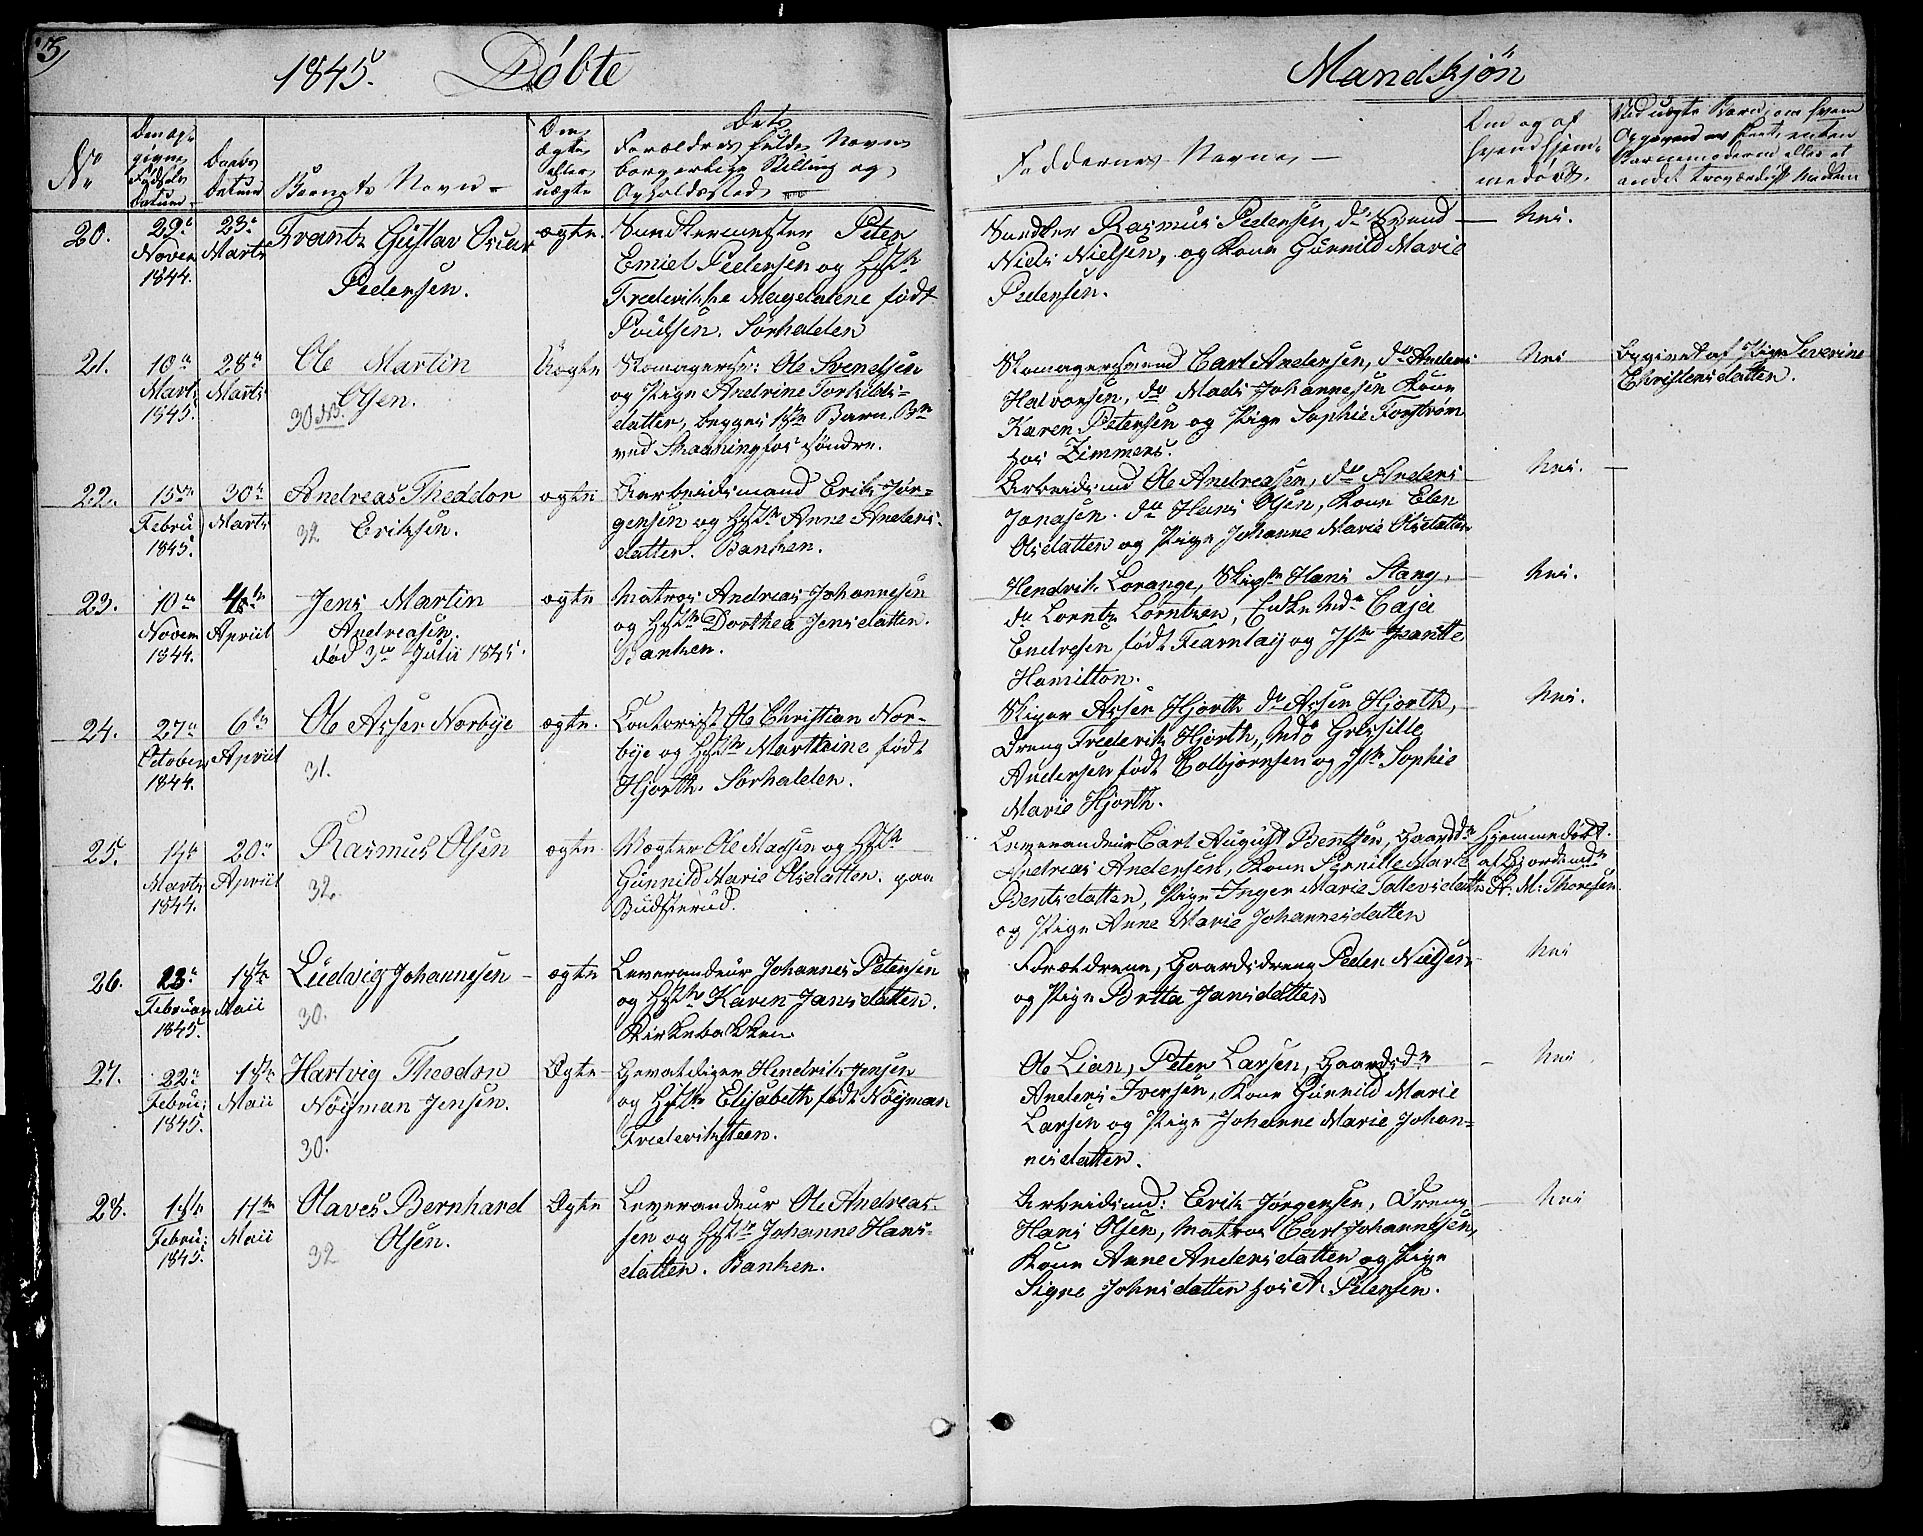 1845. Döbte
Mandkjön
No
Den op-
givne
Fødsels
Datum
Daabs
Datum
Barnets Navn
Om
ægte
eller
uægte
Dets
Forældres fulde Navne
borgerlige Stilling og
Opholdssted
Faddernes Navne
Om og af
hvem hjem-
medøbt.
20.
29de
Novem
1844.
23de
Marts
Frantz Gustav Oscar
Pedersen.
ægte.
Peter
Emiel Pedersen og Hstr
Frederikke Magdalene født
Poulsen. Sørhalden
Rasmus Pedersen, do Svend
Niels Nielsen, og Kone Gunnild Marie
Pedersen.
Nei.
21.
10de
Marts
1845.
28de
Marts
Ole Martin
Olsen.
30
Uægte
Skomagersv: Ole Svendsen
og Pige Andrine Torkilds-
datter, begges 1ste Barn.
ved Skaaningfos Søndre.
Skomagersvend Carl Andersen, do Anders
Halvorsen, do Mads Johannesen Kone
Karen Petersen og Pige Sophie Forstrøm
hos Zimmers.
Nei
Opgivet af Pige Severine
Christensdatter.
22.
15de
Febru
1845.
30de
Marts
Andreas Theodor
Eriksen.
32
ægte
Aarbeidsmand Erik Jør-
gensen og Hstr Anne Anders-
datter. Banken.
Arbeidsmd Ole Andreasen, do Anders
Jonasen. do Hans Olsen, Kone Elen
Olsdatter og Pige Johanne Marie Olsdatter
Nei.
23.
10de
Novem
1844.
4de
Apriil
Jens Martin
Andreasen.
død 3die Julii 1845.
ægte
Matros Andreas Johannesen
og Hstr Dorthea Jensdatter.
Banken.
Hendrik Lorange, Skipr Hans Stang,
do Lorntz Lorntzen, Enke Md Caja
Endresen født Fearnlay og Jfr Jeanette
Hamilton.
Nei.
24.
27de
October
1844.
6te
Apriil
Ole Asser Norbye
31.
ægte.
Contorist Ole Christian Nor-
bye og Hstr Marthine født
Hjorth. Sørhalden.
Skiper Assen Hjorth do Assen Hjorth,
Dreng Frederik Hjorth, Md Gresille
Andersen født Colbjørnsen og Jfr Sophie
Marie Hjorth.
Nei.
25.
Marts
1844.
20de
Apriil
Rasmus Olsen
32.
ægte
Vægter Ole Madsen og Hstr
Gunnild Marie Olsdatter. paa
Budsterud.
Leverandeur Carl August Bentzen, Gaardd
Andreas Andersen, Kone Pernille Marie
Bentsdatter, Pige Inger Marie Tollevsdatter
og Pige Anne Marie Johannesdatter
Hjemmedøbt
af Gjordemdr
M. Thoresen.
26.
23de
Februar
1845.
1ste
Maii
Ludvig Johannesen
30.
ægte
Leverandeur Johannes Petersen
og Hstr Karen Jansdatter.
Kirkebakken
Forældrene, Gaardsdreng Peder Nielsen
og Pige Britta Jansdatter
Nei
27.
22de
Febru:
1845.
1ste
Maii
Hartvig Theodor
Nøisman Jensen.
30.
Ægte
Gevaldiger Hendrik Jensen
og Hstr Elisabeth født Nøisman
Frederiksteen.
Ole Lian, Peter Larsen, Gaardsdr
Anders Iversen, Kone Gunnild Marie
Larsen og Pige Johanne Marie Johan-
nesdatter.
Nei
28.
1ste
Febru:
1845.
11te
Maii
Olaves Bernhard
Olsen.
32
Ægte
Leverandeur Ole Andreas-
sen og Hstr Johanne Hans-
datter. Banken.
Arbeidsmd: Erik Jørgensen, Dreng
Hans Olsen, Matros Carl Johannesen,
Kone Anne Andersdatter og Pige
Signe Johnsdatter hos A. Petersen.
Nei